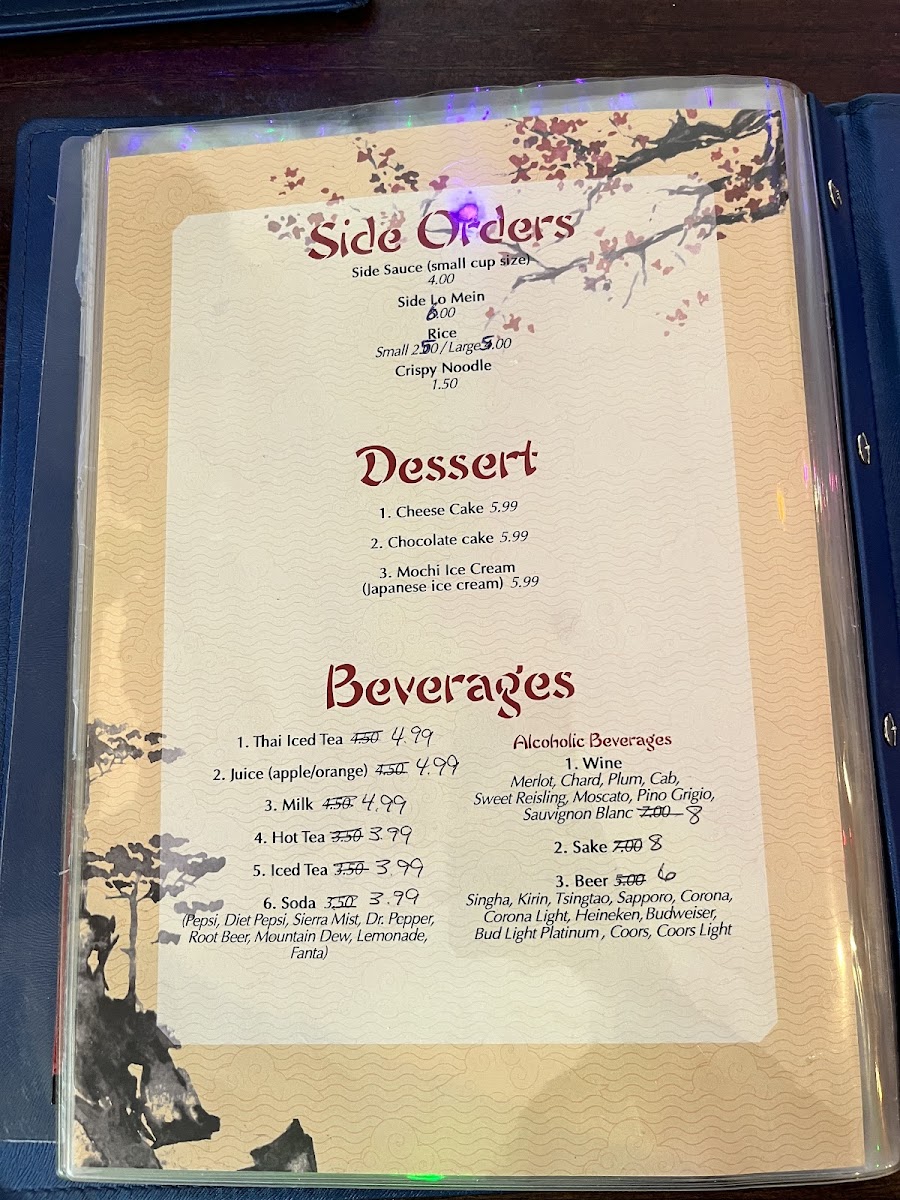 Side Orders
Side Sauce (small cup size)
4.00
Side Lo Mein
6.00
Rice
Small 2.50 / Large 5.00
Crispy Noodle
1.50
Dessert
1. Cheese Cake 5.99
2. Chocolate cake 5.99
3. Mochi Ice Cream
(Japanese ice cream) 5.99
Beverages
1. Thai Iced Tea 4.50 4.99
2. Juice (apple/orange) 4.50 4.99
3. Milk 4.50 4.99
4. Hot Tea 3.50 3.99
5. Iced Tea 3.50 3.99
6. Soda 3.50 3.99
(Pepsi, Diet Pepsi, Sierra Mist, Dr. Pepper,
Root Beer, Mountain Dew, Lemonade,
Fanta)
Alcoholic Beverages
1. Wine
Merlot, Chard, Plum, Cab,
Sweet Reisling, Moscato, Pino Grigio,
Sauvignon Blanc 7.00 8
2. Sake 7.00 8
3. Beer 5.00 6
Singha, Kirin, Tsingtao, Sapporo, Corona,
Corona Light, Heineken, Budweiser,
Bud Light Platinum , Coors, Coors Light